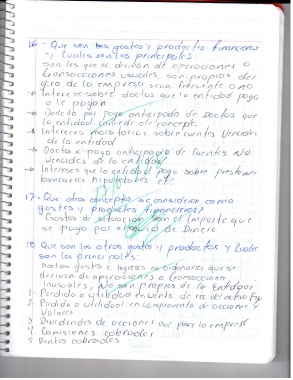 16.- Que son los gastos y productos financieros
y Cuales son los principales:
Son los que se derivan de operaciones o
transacciones usuales, son propios del
giro de la empresa sean frecuente o no
- Intereses sobre doctos que la entidad pago
o le pagan
- Descto por pago anticipado de Doctos que
la entidad concede
- Intereses moratorios sobre cuentas Vencidas
de la entidad
- Doctos x pago anticipado de Cuentas No
Vencidas de la entidad
- Intereses que la entidad pago sobre prestamos
bancarios hipotecarios etc
17.- Que otros conceptos se consideran como
gastos y productos financieros?
Gastos de situación son el importe que
se paga por el giro de Dinero
18 Que son los otros gastos y productos y Cuales
son los principales:
Son los gastos e Ingresos no ordinarios que se
derivan de operaciones o transacciones
Inusuales, No son propios de la Entidad
1 Perdida o utilidad en venta de del activo fijo
2 Perdida o utilidad en compraventa de acciones y
Valores
3 Dividendos de acciones que posee la empresa
4 Comisiones cobradas
5 Rentas cobradas